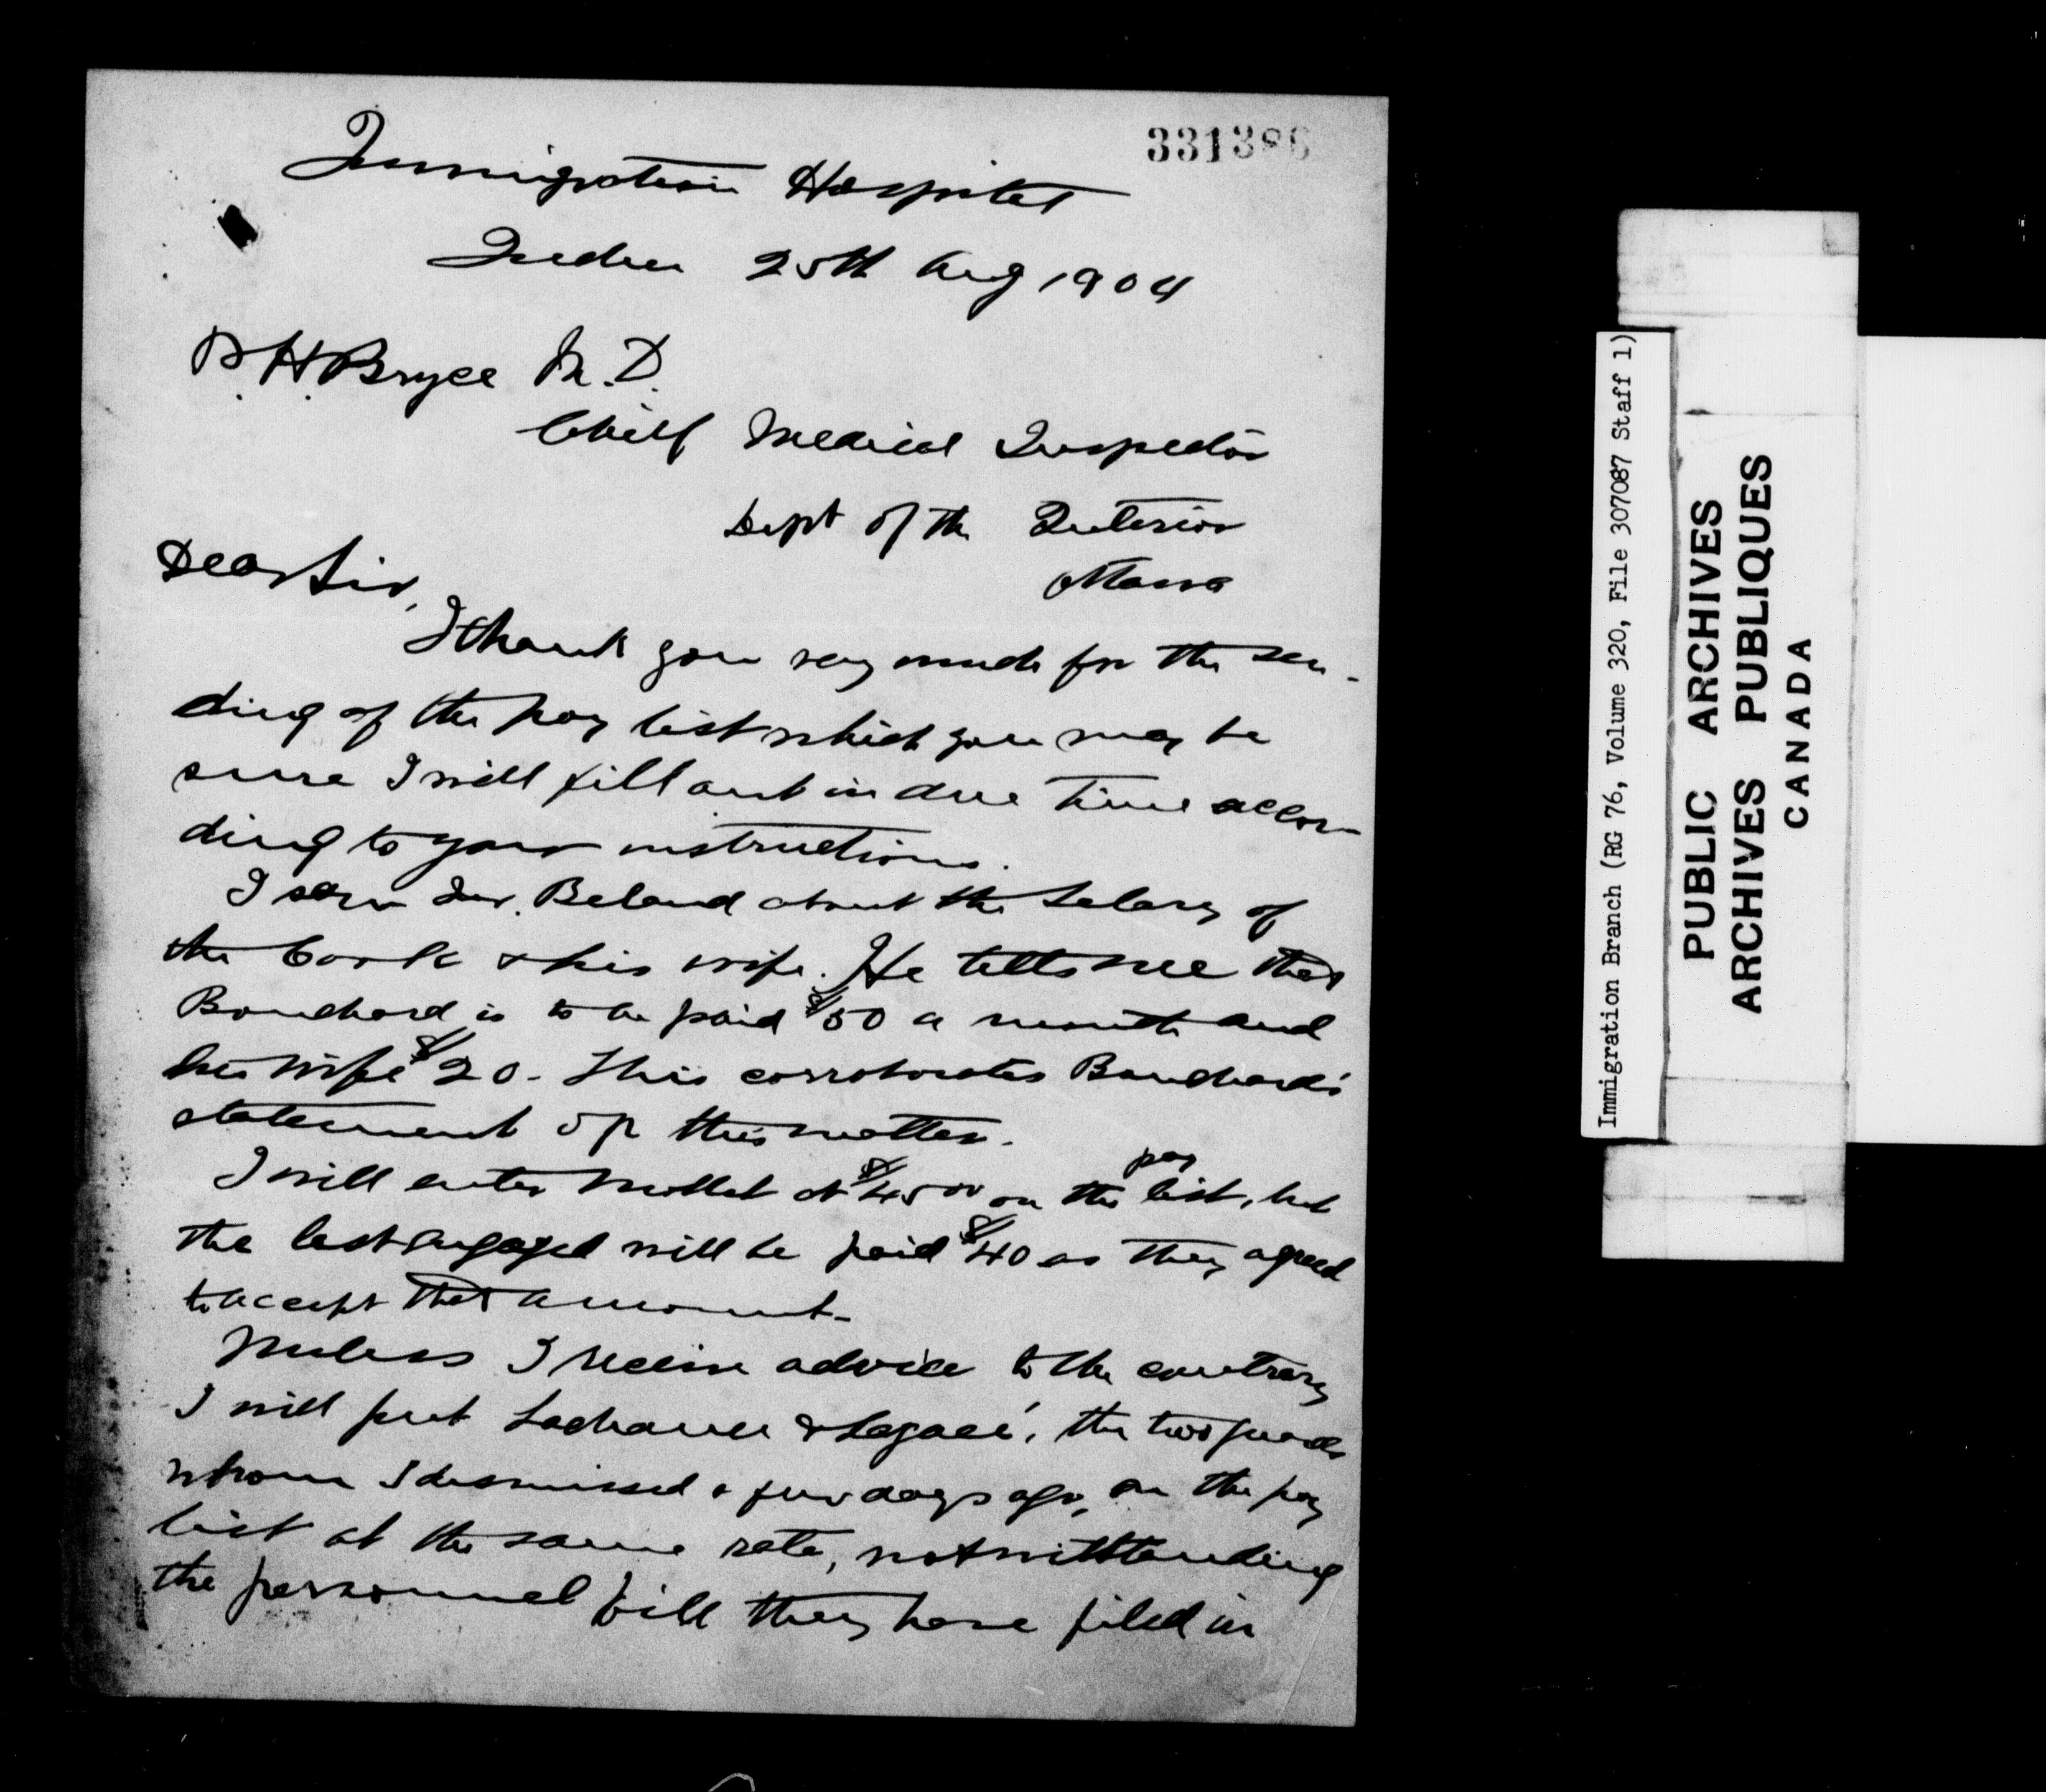 331386
Immigration Hospital
Quebec 25th Aug 1904
P. H. Bryce M.D.
Chief Medical Inspector
Dept of the Interior
Ottawa
Dear Sir,
I thank you very much for the sen-
ding of the pay list which you may be
sure I will fill out in due time accor-
ding to your instructions.
I saw Beland about the Salary of
the Cook & his wife. He tells me that
Bouchard is to be paid $50 a month and
his wife $20. This corroborates Bouchard's
statement of this matter.
I will enter at $45 00 on the pay list, but
the last engaged will be paid $40 as they agreed
to accept that amount.
Unless I receive advice to the contrary
I will put Lachance & Legacé, the two guards
whom I dismissed a few days ago, on the pay
list at the same rate, notwithstanding
the personnel bill they have filed in
Immigration Branch (RG 76, Volume 320, File 307087 Staff 1)
PUBLIC ARCHIVES
ARCHIVES PUBLIQUES
CANADA